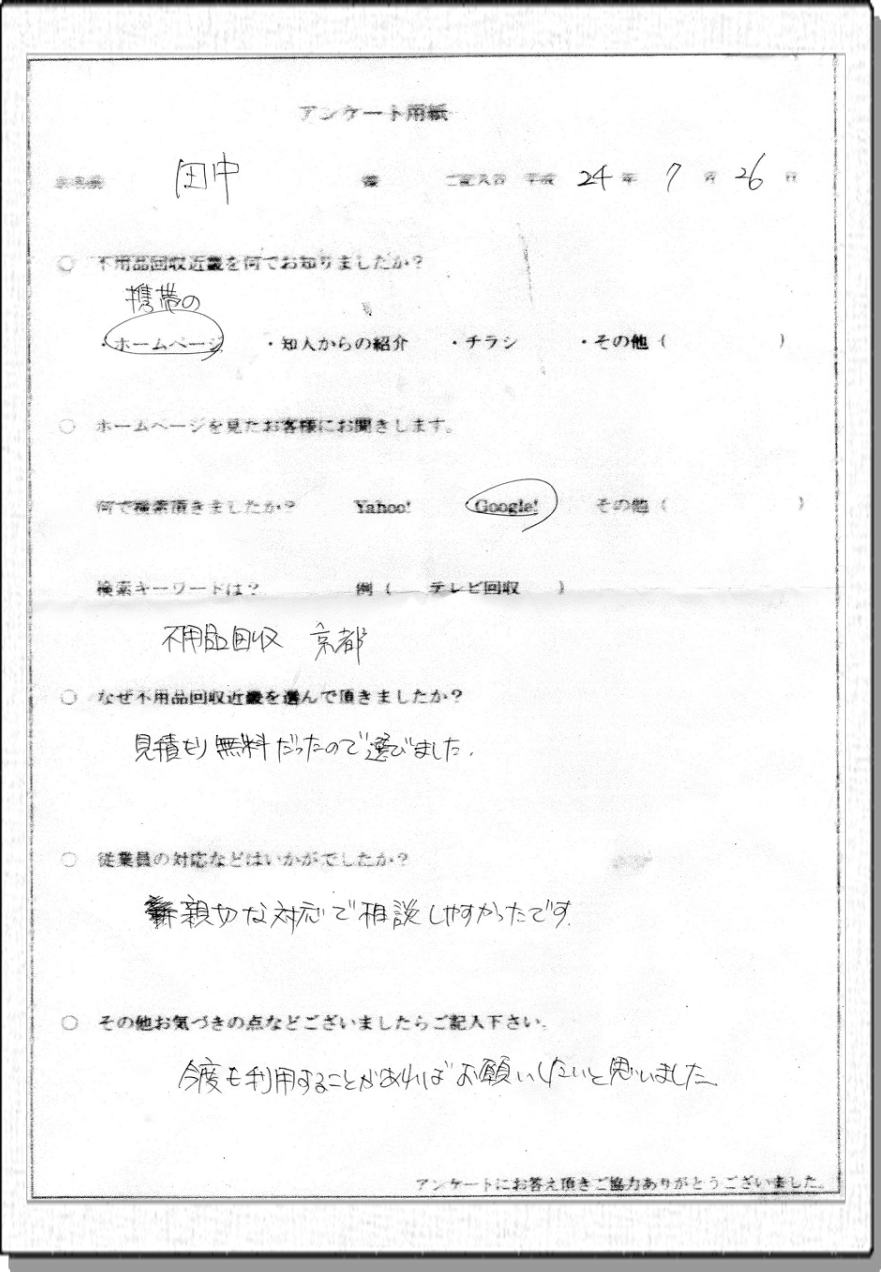 アンケート用紙
お名前 田中 様 ご記入日 平成 24 年 7 月 26 日
○ 不用品回収近畿を何でお知りましたか？
携帯の
・ホームページ ・知人からの紹介 ・チラシ ・その他（ ）
○ ホームページを見たお客様にお聞きします。
何で検索頂きましたか？ Yahoo! Google! その他（ ）
検索キーワードは？ 例（ テレビ回収 ）
不用品回収 京都
○ なぜ不用品回収近畿を選んで頂きましたか？
見積もり無料だったので選びました.
○ 従業員の対応などはいかがでしたか？
親切な対応で相談しやすかったです.
○ その他お気づきの点などございましたらご記入下さい.
今度も利用することがあればお願いしたいと思いました
アンケートにお答え頂きご協力ありがとうございました。